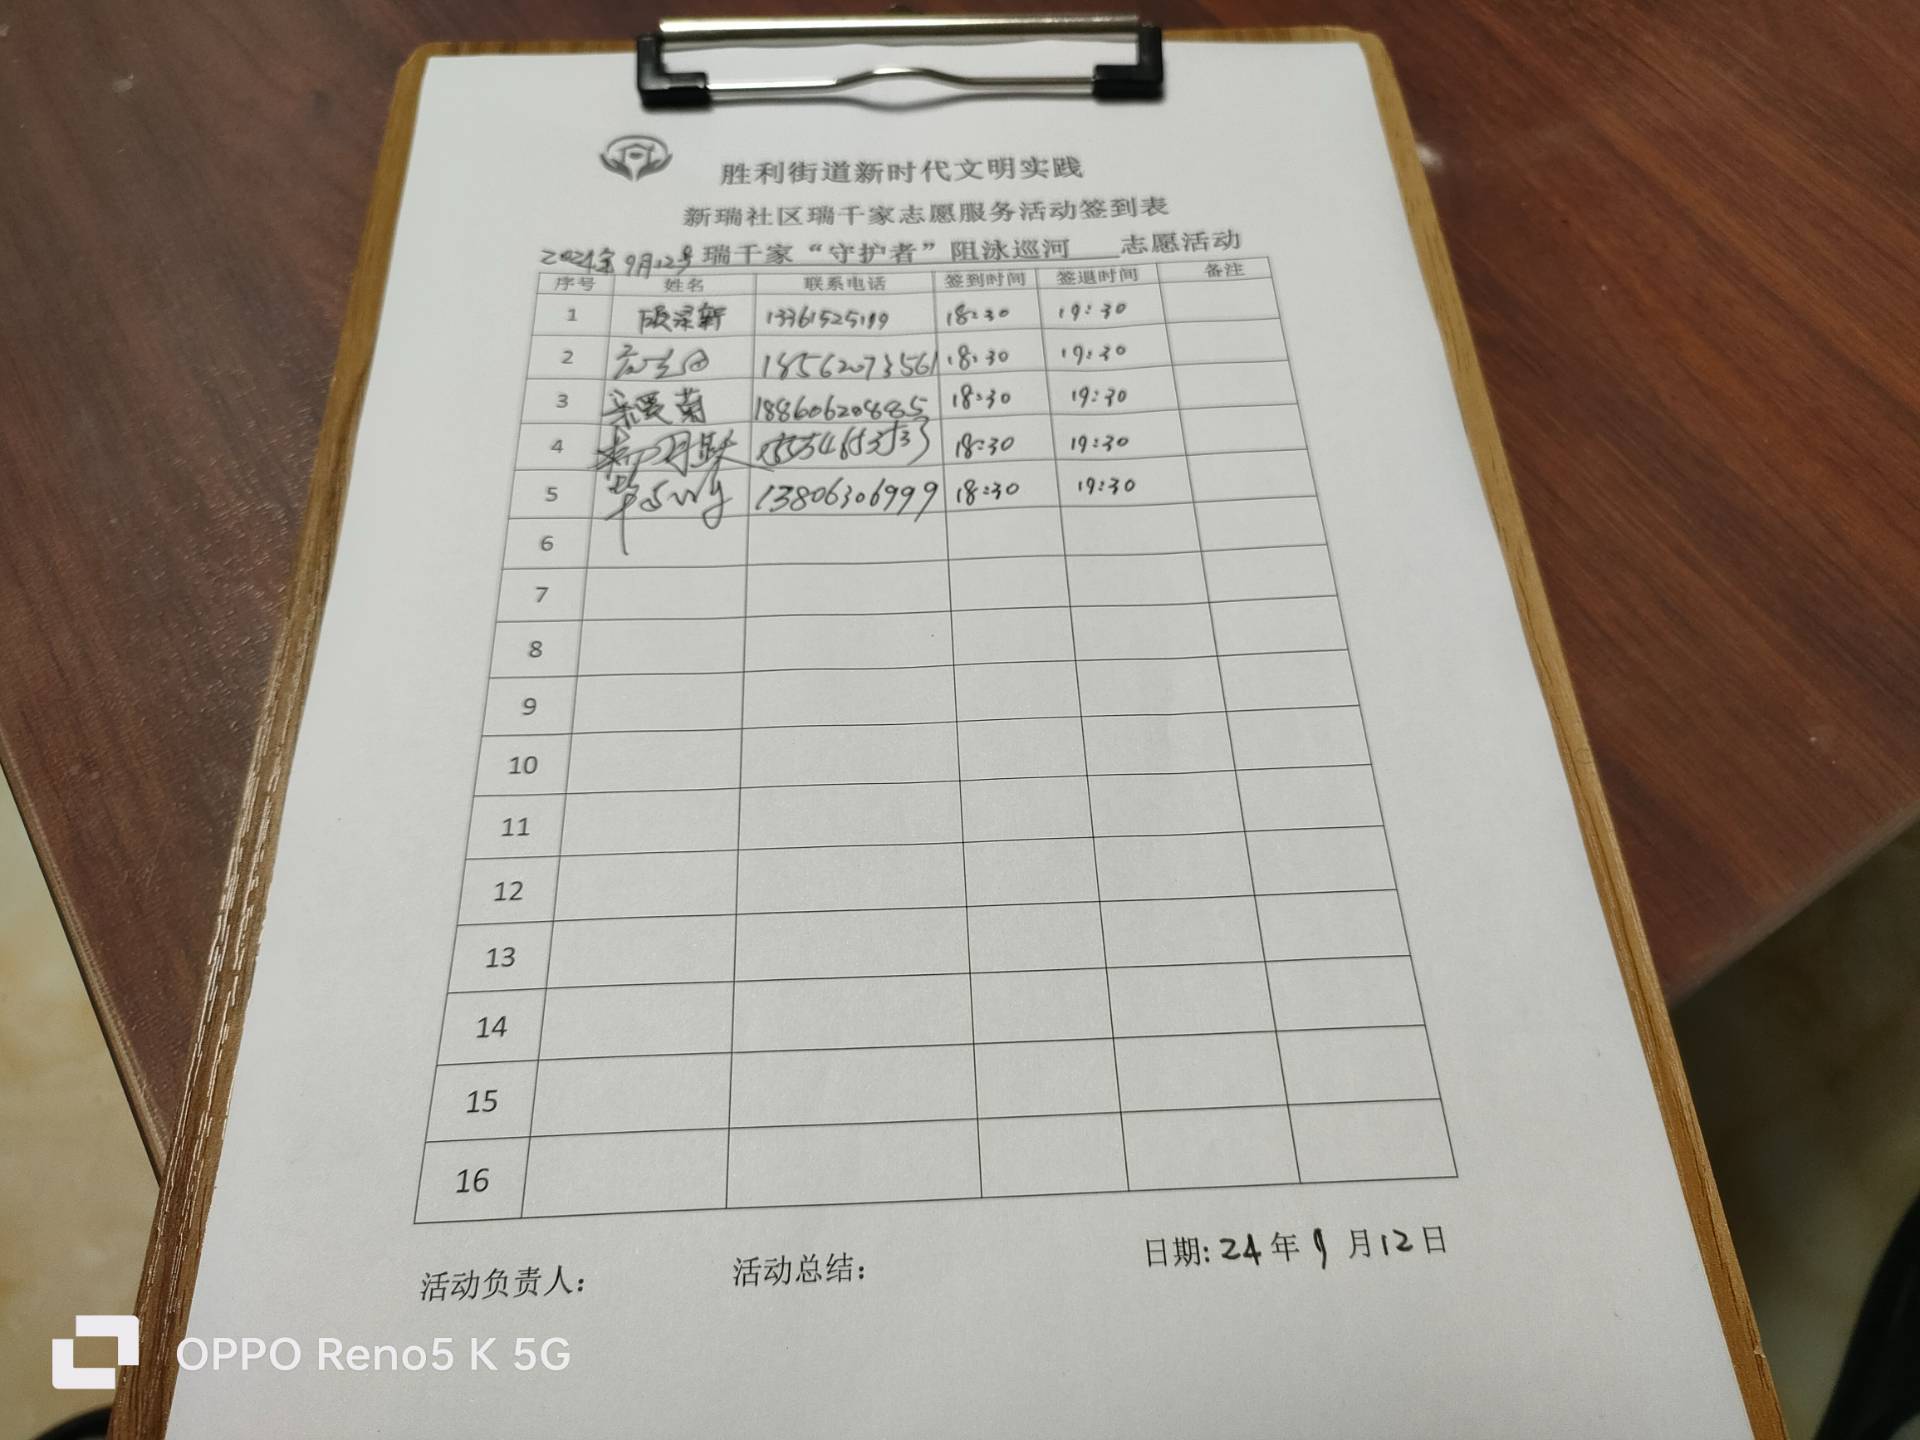 胜利街道新时代文明实践
新瑞社区瑞千家志愿服务活动签到表
2024年9月12号 瑞千家“守护者”阻泳巡河 志愿活动
序号 姓名 联系电话 签到时间 签退时间 备注
1 18:30 19:30
2 18562073561 18:30 19:30
3 18860620885 18:30 19:30
4 18:30 19:30
5 13806306999 18:30 19:30
6
7
8
9
10
11
12
13
14
15
16
活动负责人: 活动总结: 日期: 24年9月12日
OPPO Reno5 K 5G